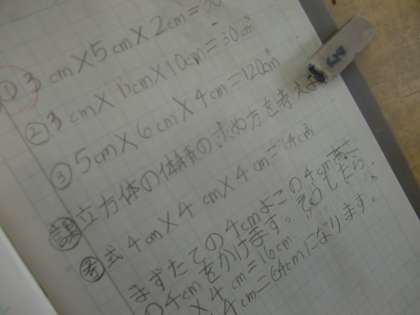 ① 3cm×5cm×2cm=
② 3cm×1cm×10cm=30cm³
③ 5cm×6cm×4cm=120cm³
課 立方体の体積の求め方を考えよ
考 式 4cm×4cm×4cm=64cm³
まずたての4cmよこの4cm
4cmをかけます。そうしたら、
×4cm=16cm
4cm=64cmになります。